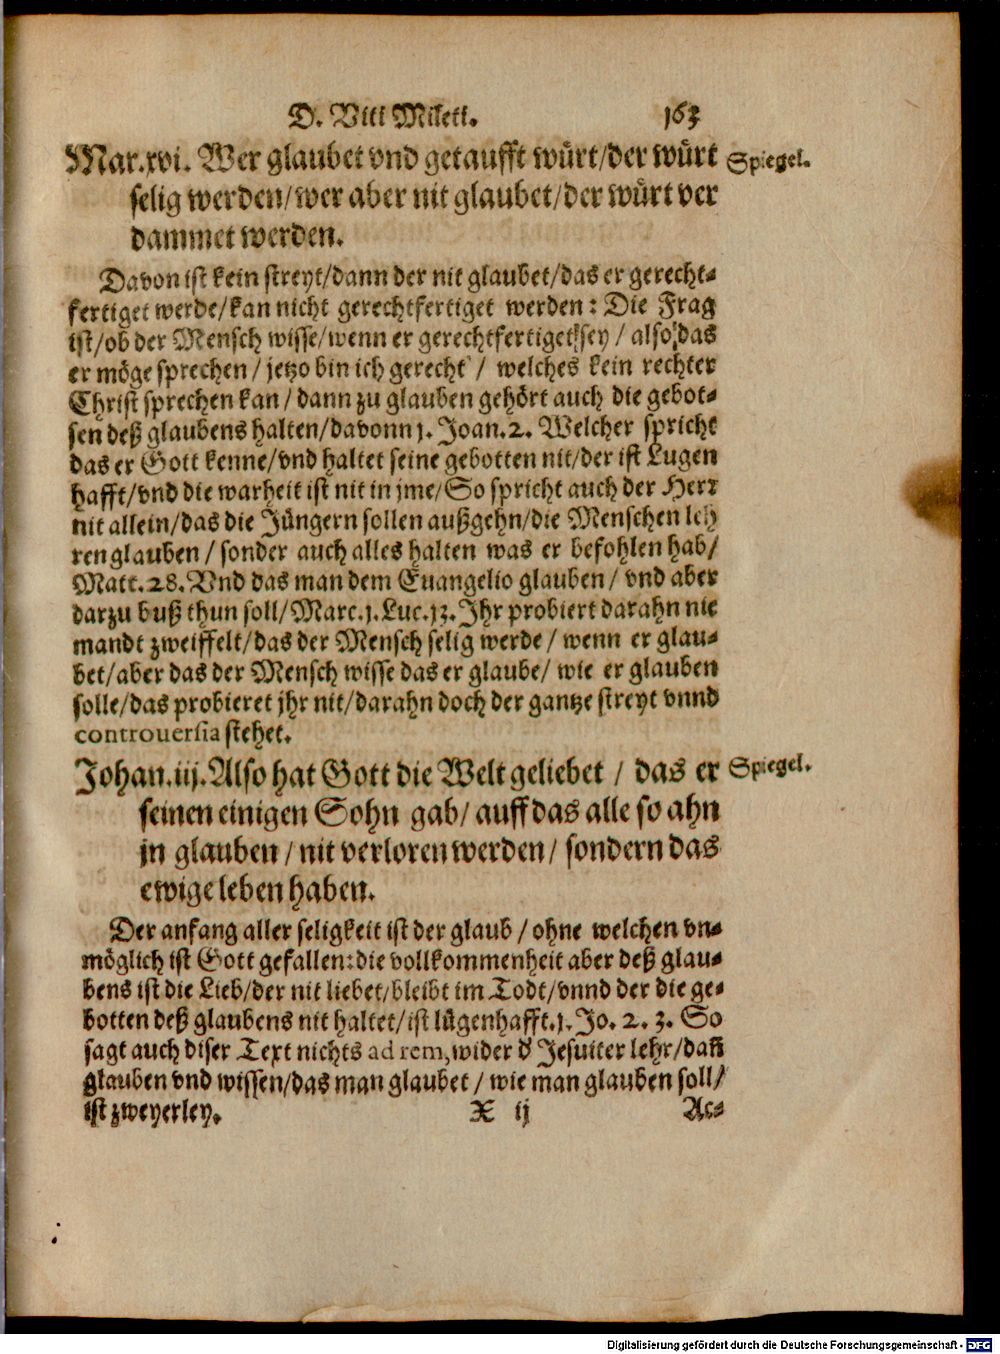 D. Viti Mileti. 163
Mar.xvi. Wer glaubet vnd getaufft würt/der würt Spiegel.
selig werden/wer aber nit glaubet/der würt ver
dammet werden.
Davon ist kein streyt/dann der nit glaubet/das er gerecht-
fertiget werde/kan nicht gerechtfertiget werden: Die Frag
ist/ob der Mensch wisse/wenn er gerechtfertiget sey / also das
er möge sprechen / jetzo bin ich gerecht / welches kein rechter
Christ sprechen kan / dann zu glauben gehört auch die gebot-
sen deß glaubens halten/davonn 1. Joan. 2. Welcher spricht
das er Gott kenne/vnd haltet seine gebotten nit/der ist Lugen
hafft/vnd die warheit ist nit in jme/So spricht auch der Herr
nit allein/das die Jüngern sollen außgehn/die Menschen leh
ren glauben / sonder auch alles halten was er befohlen hab/
Matt. 28. Vnd das man dem Euangelio glauben / vnd aber
darzu buß thun soll/Marc. 1. Luc. 13. Ihr probiert darahn nie
mandt zweiffelt/das der Mensch selig werde / wenn er glau-
bet/aber das der Mensch wisse das er glaube/ wie er glauben
solle/das probieret jhr nit/darahn doch der gantze streyt vnnd
controuersia stehet.
Johan.iij. Also hat Gott die Welt geliebet / das er Spiegel.
seinen einigen Sohn gab/ auff das alle so ahn
jn glauben / nit verloren werden/ sondern das
ewige leben haben.
Der anfang aller seligkeit ist der glaub / ohne welchen vn-
möglich ist Gott gefallen: die vollkommenheit aber deß glau-
bens ist die Lieb/der nit liebet/bleibt im Todt/vnnd der die ge-
botten deß glaubens nit haltet/ist lügenhafft. 1. Jo. 2. 3. So
sagt auch diser Text nichts ad rem, wider d' Jesuiter lehr/dañ
glauben vnd wissen/das man glaubet / wie man glauben soll/
ist zweyerley. X ij Ac-
Digitalisierung gefördert durch die Deutsche Forschungsgemeinschaft - DFG